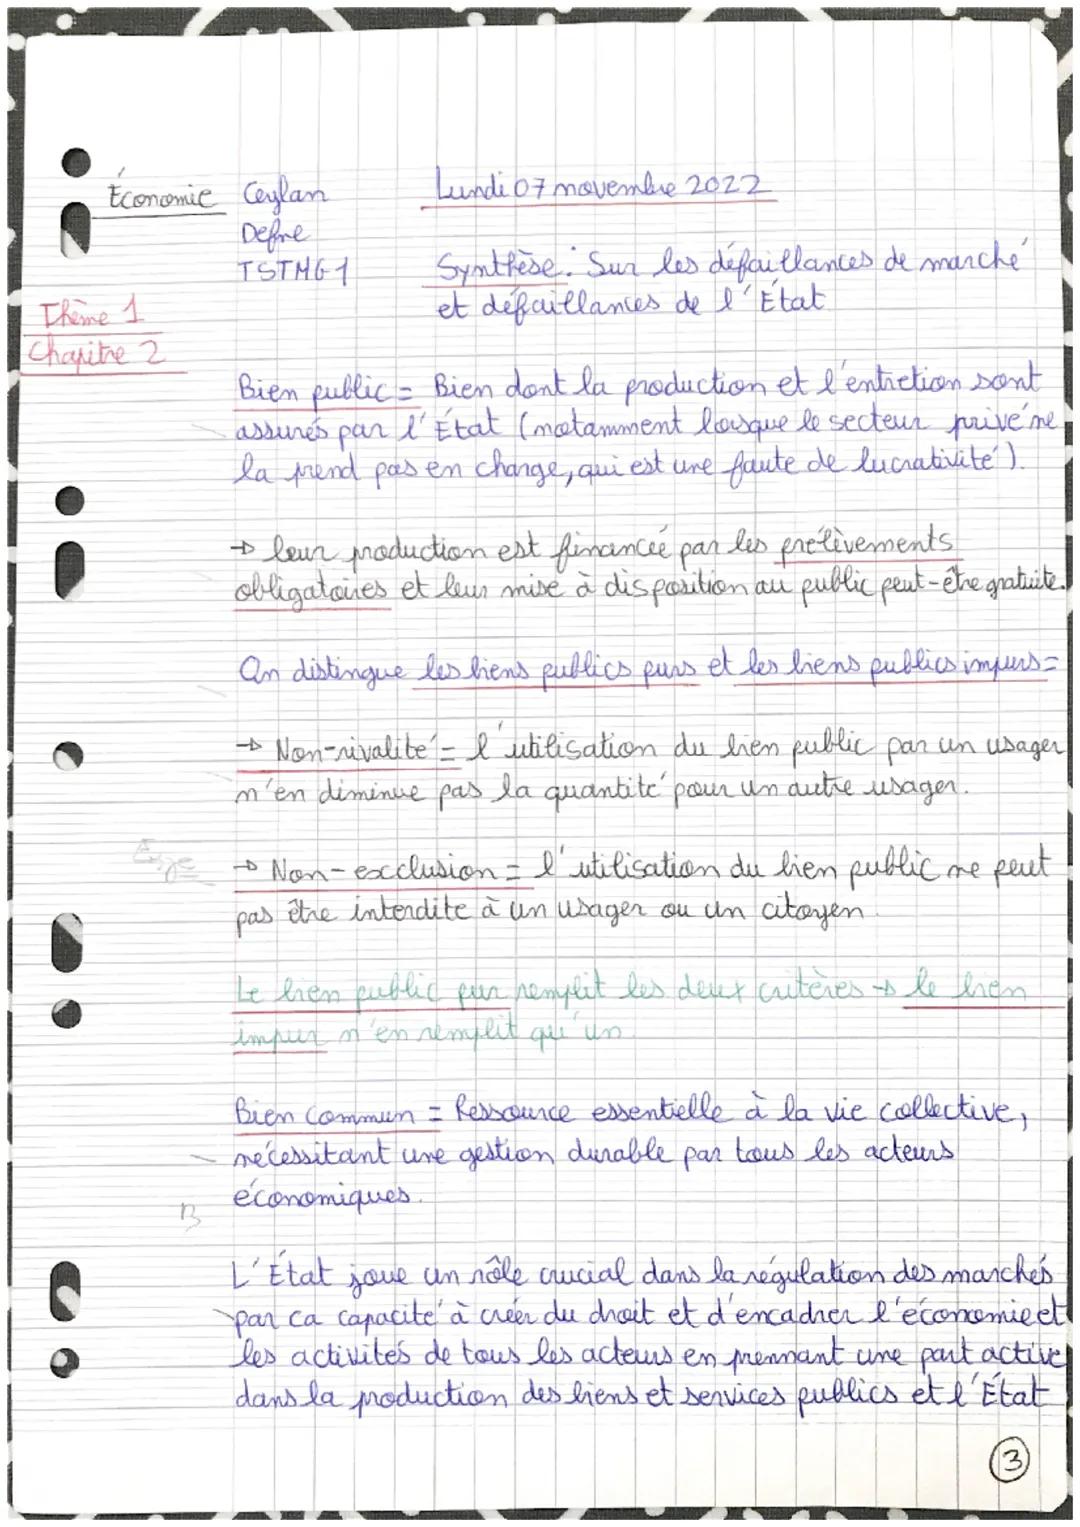 Économie Ceylan Lundi 07 novembre 2022
Defne
TSTMG1 Synthèse : Sur les défaillances de marché
et défaillances de l'État
Thème 1
Chapitre 2
Bien public = Bien dont la production et l'entretion sont
assurés par l'État (notamment lorsque le secteur privé ne
la prend pas en change, qui est une faute de lucrativité).
→ leur production est financée par les prélèvements
obligatoires et leur mise à disposition au public peut-être gratuite.
On distingue les biens publics purs et les biens publics impurs =
→ Non-rivalité = l'utilisation du bien public par un usager
n'en diminue pas la quantité pour un autre usager.
→ Non-exclusion = l'utilisation du bien public ne peut
pas être interdite à un usager ou un citoyen.
Le bien public pur remplit les deux critères → le bien
impur n'en remplit qu'un.
Bien commun = Ressource essentielle à la vie collective,
nécessitant une gestion durable par tous les acteurs
économiques.
L'État joue un rôle crucial dans la régulation des marchés
par ca capacité à créer du droit et d'encadrer l'économie et
les activités de tous les acteurs en prennant une part active
dans la production des biens et services publics et l'État
3